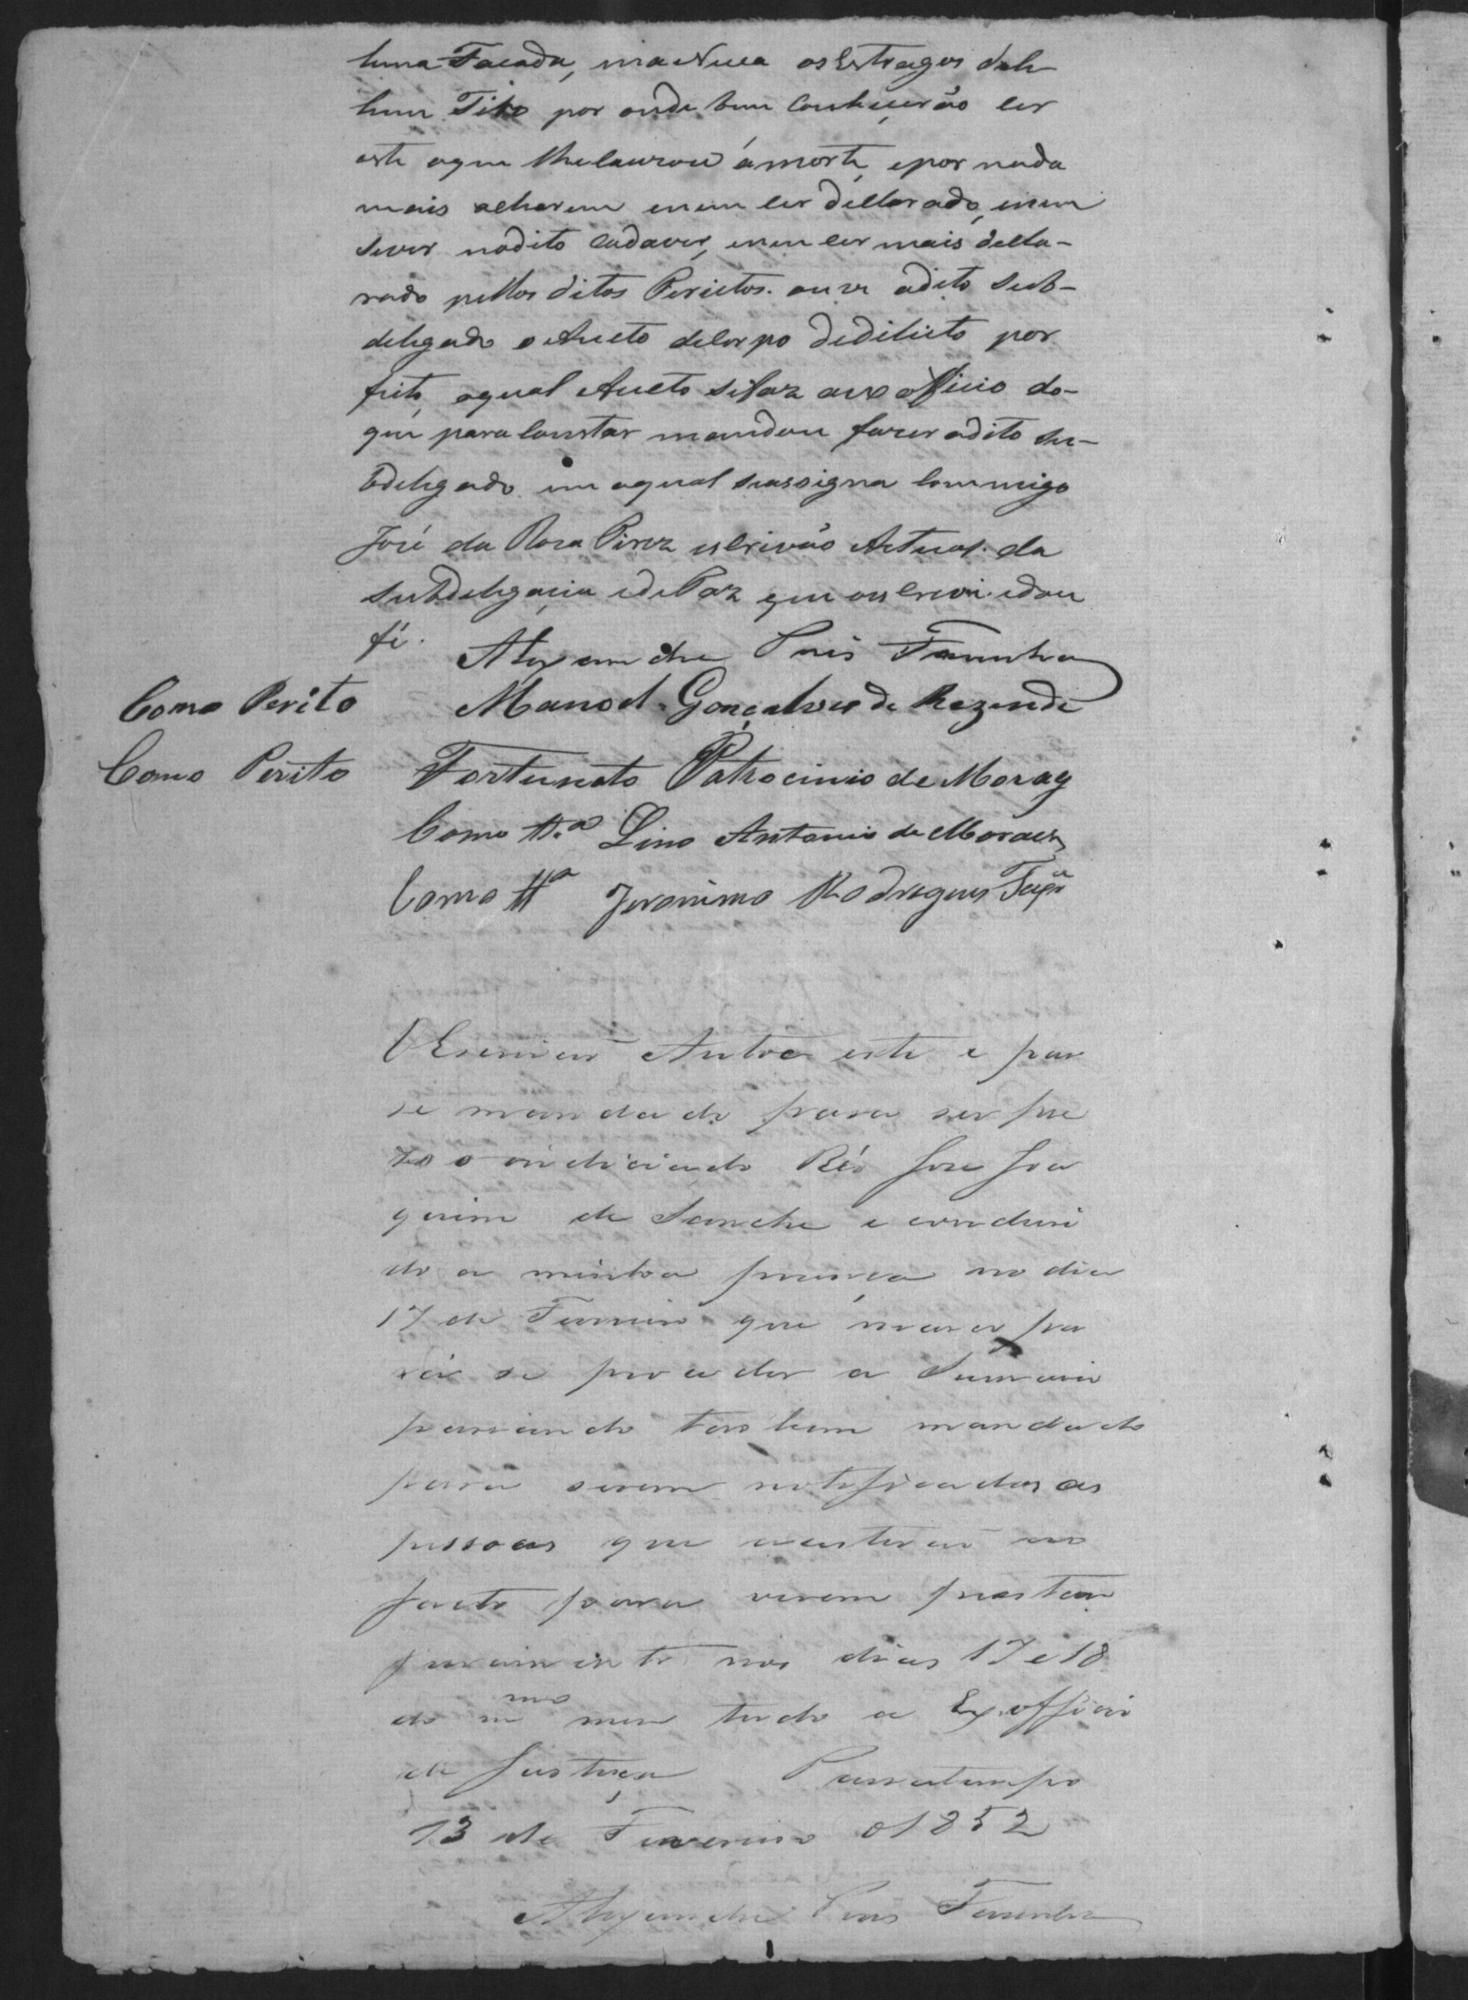 huma Facada, ena Nuca os Estragos deh
hum Tiro por onde bem Conheçerão ser
este oque lhe Cauzou á morte, epor nada
mais acharem enem ser decllarado, enem
sever nodito Cadaver, enem ser mais decla-
rado pellos ditos Perictos. ouve odito Sub-
delegado o Aucto deCorpo dedelicto por
feito, oqual Aucto sefaz aexofficio do-
que para Constar mandou fazer odito Su-
bdelegado em oqual seassigna Commigo
José da Roza Pirez escrivão Actual. da
Subdelegaçia edePaz que oescrevi. edou
fé. Alexandre Pires Farinha
Como Perito Manoel Gonçalves de Rezende
Como Perito Fortunato Patrocinio de Moraes
Como tt.a Lino Antonio de Moraes
Como tta Jeronimo Rodrigues
O Escrivão Autoe este e pas
se mandado para ser pre
zo o indiciado Réo Jose Joa
quim de e conduzi
do a minha prezença no dia
17 de Fevereiro que marco pa
ra se proceder a Sumario
passando tambem mandado
para serem notificadas as
pessoas que
facto para virem prestar
juramento nos dias 17 e 18
do mmo mes tudo a Ex officio
de Justiça Passatempo
13 de Fevereiro d1852
Alexandre Pires Farinha